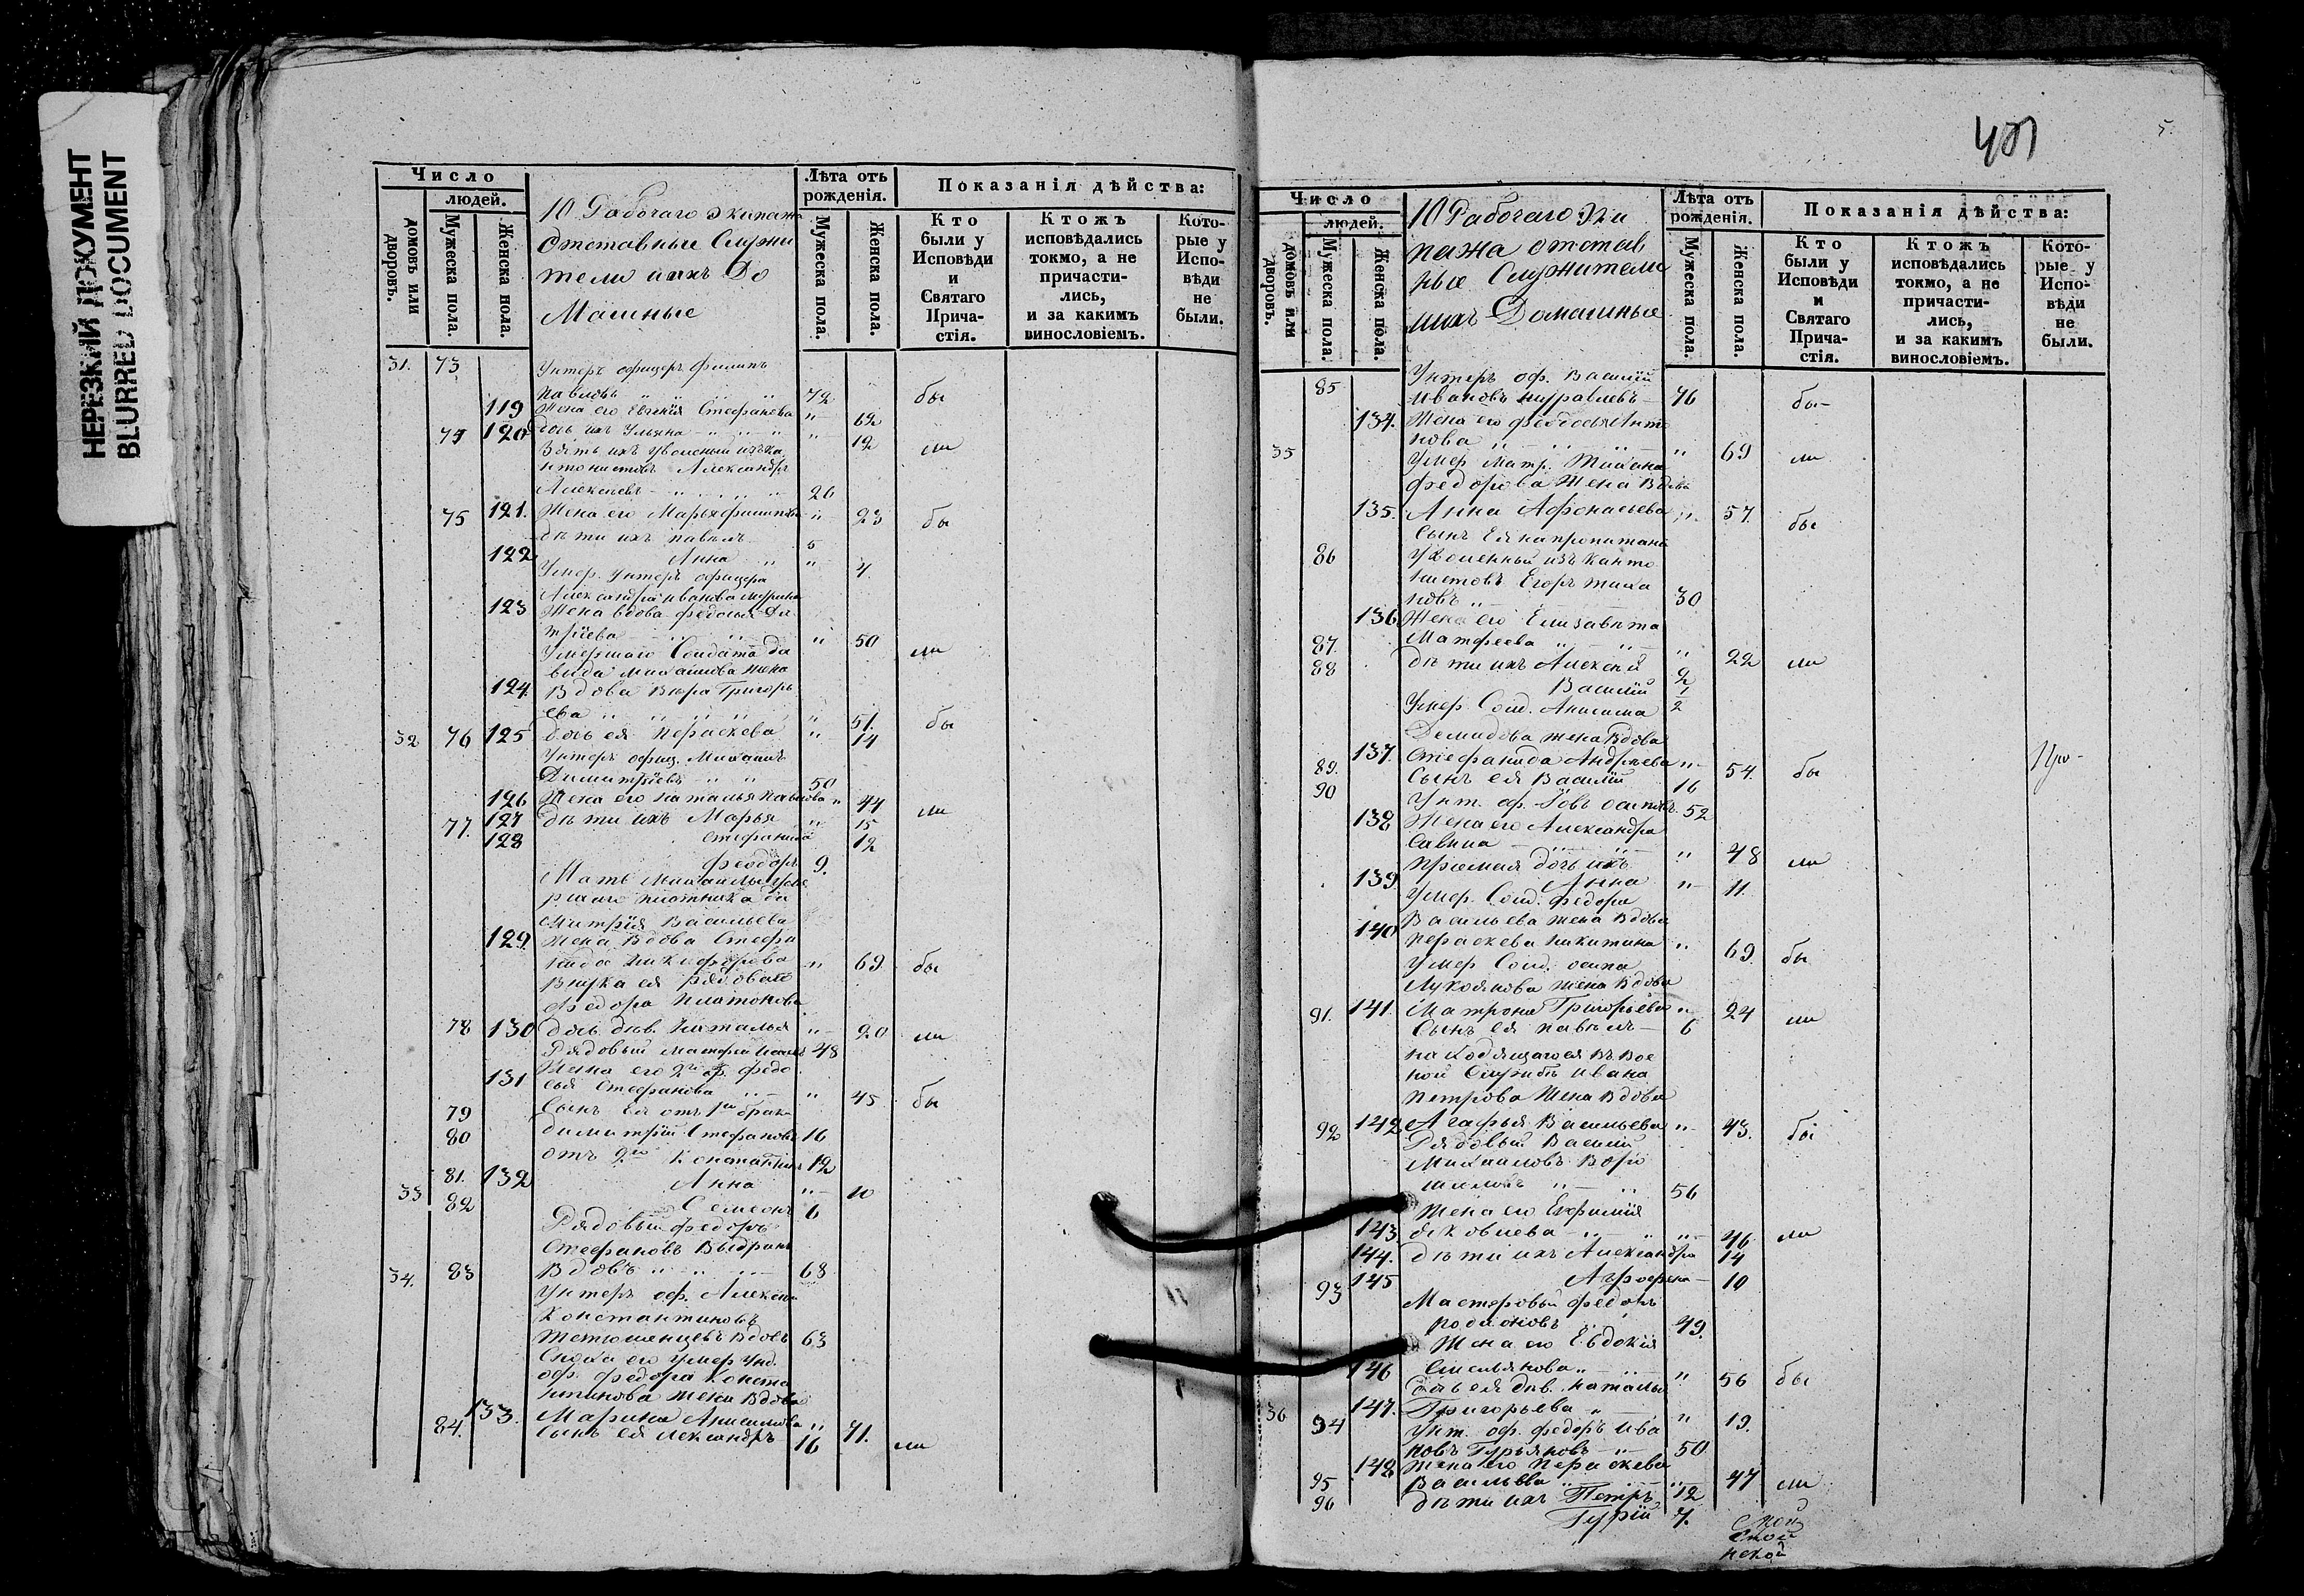 НЕРЕЗКИЙ ДОКУМЕНТ
BLURRED DOCUMENT
Число
людей.
домовъ или дворовъ.
Мужеска пола.
Женска пола.
10 Рабочаго Экипажа
отставные Служи
тели и ихъ До
машные
Лѣта отъ рожденія.
Мужеска пола.
Женска пола.
Показанія дѣйства:
Кто были у Исповѣди и Святаго Прича- стія.
Ктожъ исповѣдались токмо, а не причасти- лись, и за какимъ винословіемъ.
Кото- рые у Испо- вѣди не были.
31. 73 Унтеръ офицеръ Филипъ
Павловъ 72 бы
119 Жена его Евгенія Стефанова 62
120 дочь ихъ Ульяна 12 ли
Зять ихъ уволеный изъ ка
нтонистовъ Александръ
Алексѣевъ 26
75 121. Жена его Марья Филипова 23 бы
дѣти ихъ Павелъ 5
122 Анна 4.
Умер. Унтеръ офицера
Александра Иванова
123 Жена вдова Федосья Дм
трiева 50 ли
Умершаго Солдата Да
вида Михайлова жена
124. Вдова Вѣра Григорь
ева 51. бы
32 76 125 дочь ея Параскева 14
Унтеръ офиц. Михаилъ
Димитрiевъ 50
126 Жена его Наталья Павлова 44 ли
127 дѣти ихъ Марья 15
77. 128 Стефанида 12
Феодоръ 9.
Мать Михайлы уме
ршаго плотника Ди
митрiя Васильева
129. жена вдова Стефа
нида Никифорова 69 бы
Внука ея рядоваго
Федора Платонова
78 130 дочь дѣв. Наталья 20 ли
Рядовый Матфей 48
Жена его 2го бр. Федо
131 сья Стефанова 45 бы
79 Сынъ Ея отъ 1го брака
80 Димитрiй Стефановъ 16
отъ 2го Константинъ 12
81. 132 Анна 10
33 82 Семеонъ 6
Рядовый Федоръ
Стефановъ
34. 83 Вдовъ 68
Унтеръ оф. Алексѣй
Константиновъ
вдовъ 63
Сноха его умер. Унт.
оф. Федора Конста
нтинова жена вдова
133. Марина Анисимова 41.
84. Сынъ ея Александръ 16 ли
5.
Число
людей.
домовъ или дворовъ.
Мужеска пола.
Женска пола.
10 Рабочаго Эки
пажа отстав
ные Служители
ихъ Домашные
Лѣта отъ рожденія.
Мужеска пола.
Женска пола.
Показанія дѣйства:
Кто были у Исповѣди и Святаго Прича- стія.
Ктожъ исповѣдались токмо, а не причасти- лись, и за какимъ винословіемъ.
Кото- рые у Испо- вѣди не были.
85 Унтеръ оф. Василiй
Ивановъ Муравлевъ 76 бы
134. Жена его Феодосья Анто
нова 69 ли
35 Умер. матр.
Федорова Жена Вдова
135. Анна Афонасьева 57. бы
Сынъ Ея на пропитанiи
86 Уволенный изъ Канто
нистовъ Егоръ Тиха
новъ 30
136 Жена его Елизавѣта
87. Матфеева 22 ли
88 дѣти ихъ Алексѣй 2
Василiй 1/2
Умер. Солд. Анисима
Демидова жена вдова
137. Стефанида Андрѣева 54. бы
89. Сынъ ея Василiй 16
90 Унт. оф. Iовъ Осиповъ 52
138 Жена его Александра
Савина 48 ли
Прiемная дочь ихъ
139 Анна 11.
Умер. Солд. Федора
Васильева жена вдова
140 Параскева Никитина 69. бы
Умер. Солд. Осипа
Лукоянова жена вдова
91. 141. Матрона Григорьева 24 ли
Сынъ ея Павелъ 6
Находящагося въ Вое
ной Службѣ Ивана
Петрова Жена Вдова
92 142 Агафья Васильева 43. бы
Рядовый Василiй
Михаиловъ
56
Жена его Евфимiя
143. Яковлева 46 ли
144. дѣти ихъ Александра 14
93 145 Агрофена 10
Мастеровый Федоръ
Родiоновъ 49.
Жена его Евдокiя
146 Емельянова 56 бы
дочь ея дѣв. Наталья
147. Григорьева 19.
36 94 Унт. оф. Федоръ Ива
новъ Гурьяновъ 50
148 Жена его Параскева
95 Васильева 47 ли
96 дѣти ихъ Петръ 12
Гурiй 7.